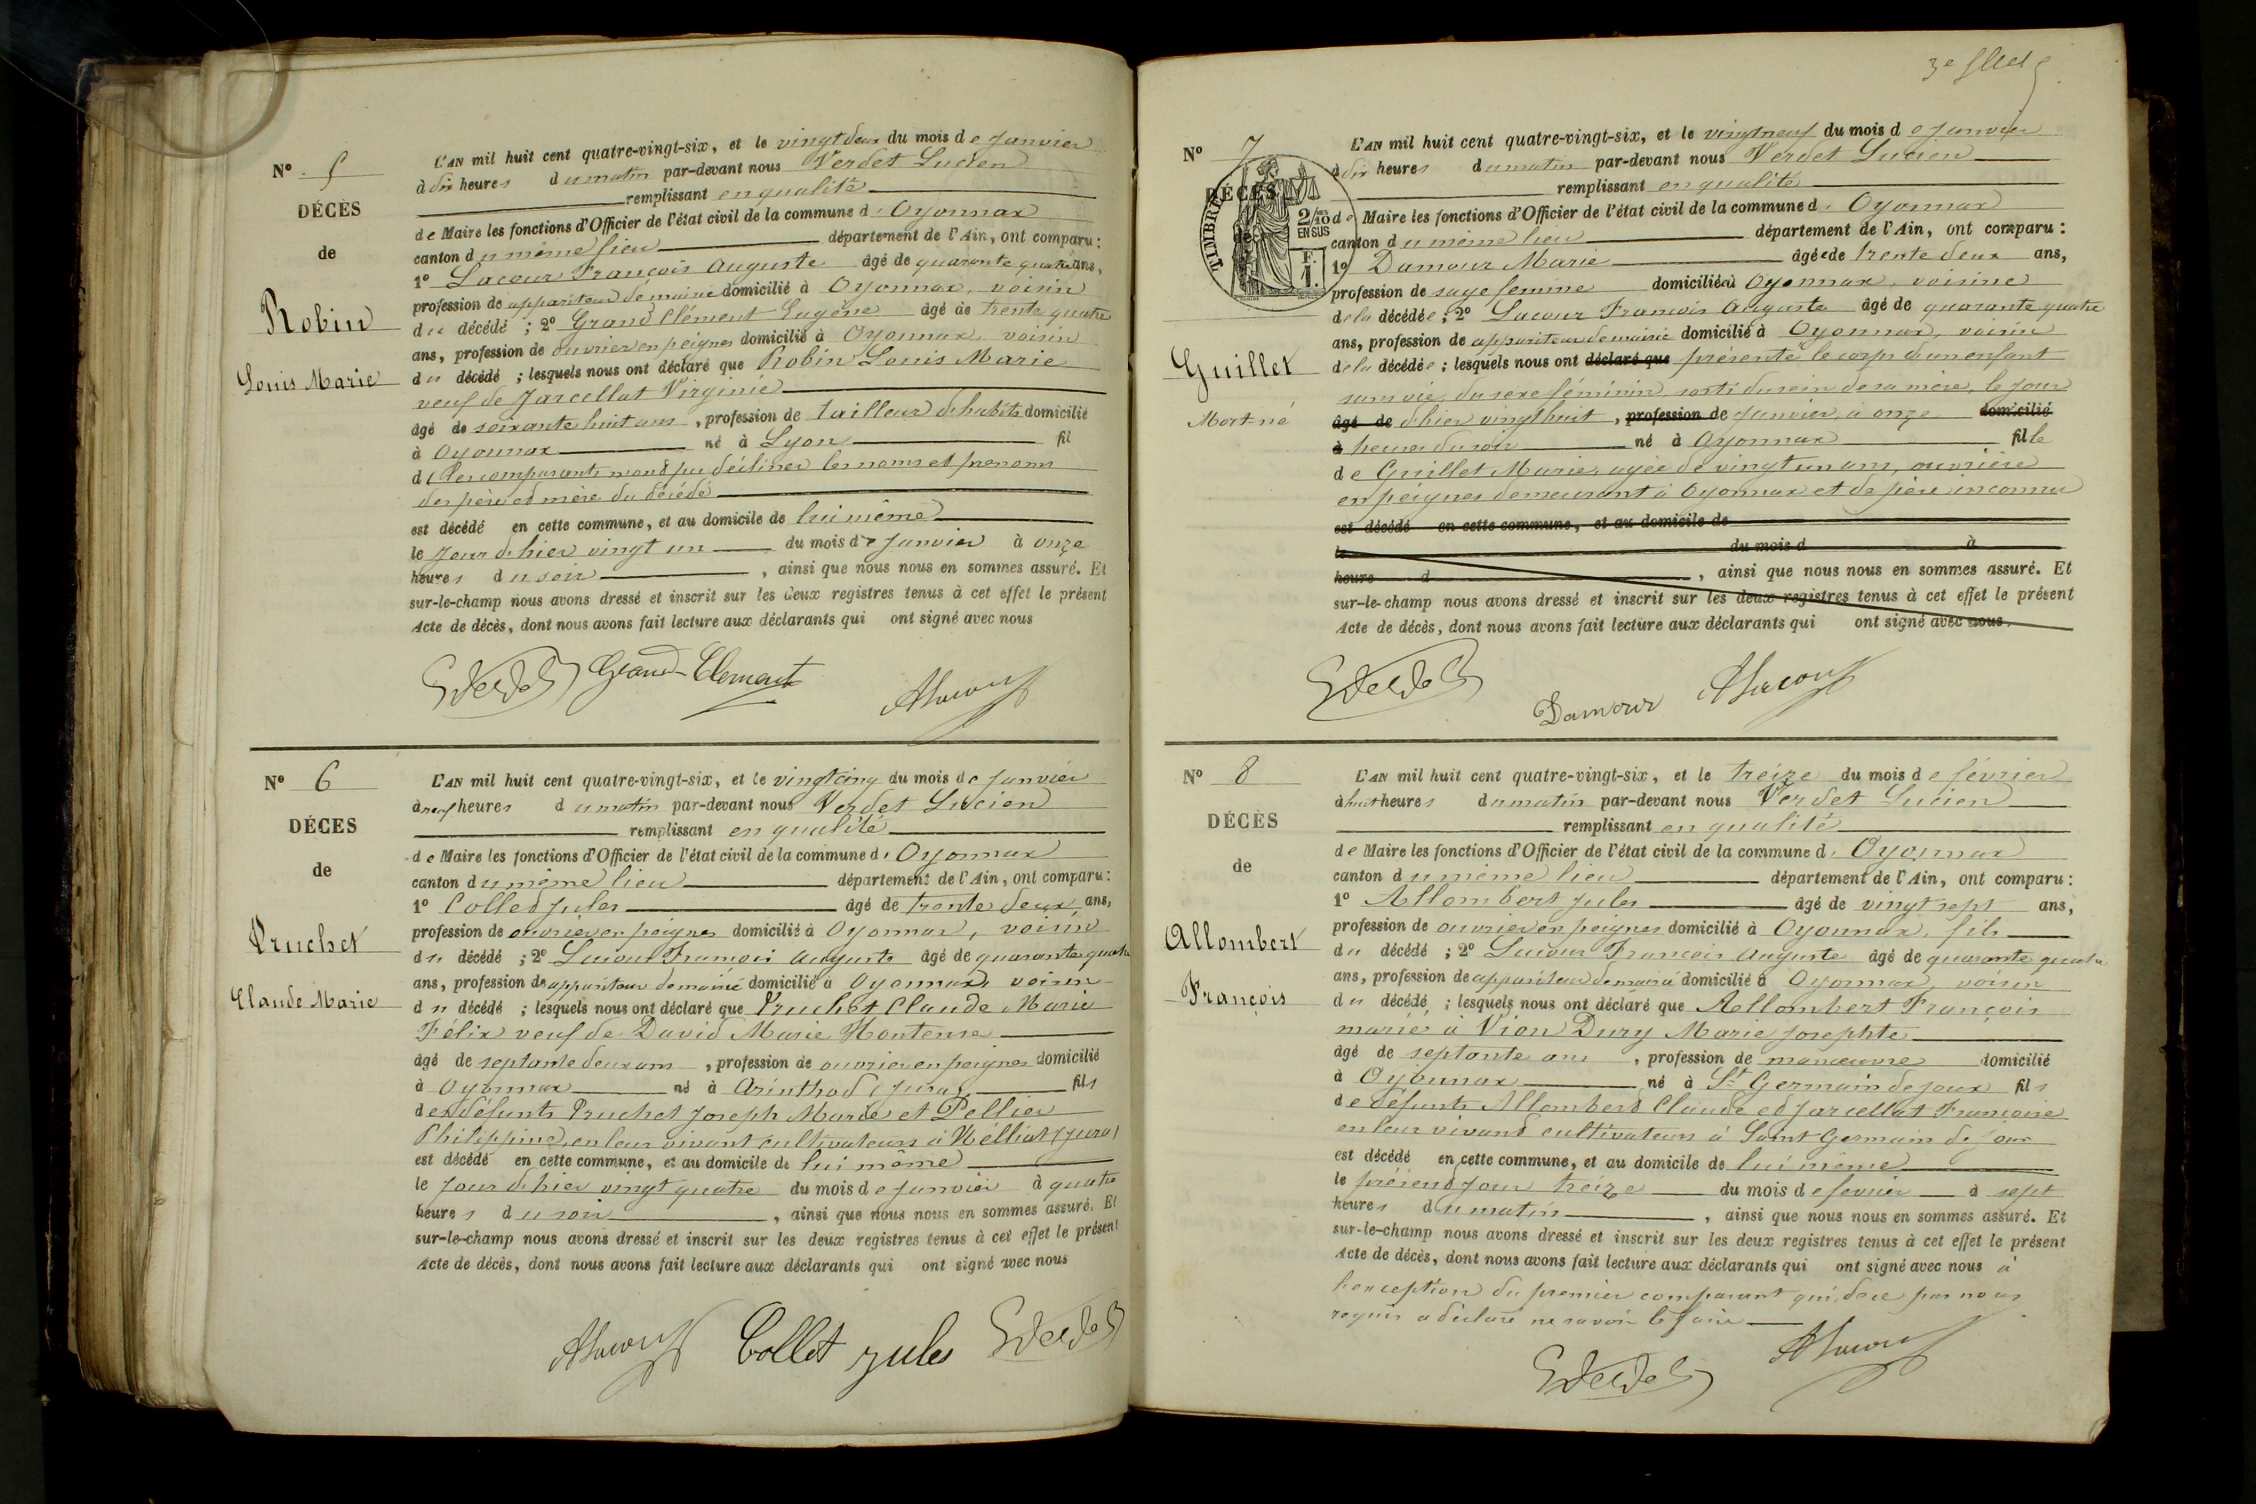 N° 5
DÉCÈS
de
Robin
Louis Marie
L'AN mil huit cent quatre-vingt-six, et le vingt deux du mois de Janvier
à dix heures du matin par-devant nous Verdet Lucien
remplissant en qualité
de Maire les fonctions d'Officier de l'état civil de la commune d' Oyonnax
canton du même lieu département de l'Ain, ont comparu :
1° Lacour François Auguste âgé de quarante quatre ans,
profession de appariteur de mairie domicilié à Oyonnax, voisin
du décédé ; 2° Grand Clément Eugène âgé de trente quatre
ans, profession de ouvrier en peignes domicilié à Oyonnax, voisin
du décédé ; lesquels nous ont déclaré que Robin Louis Marie
veuf de Jarcellat Virginie
âgé de soixante huit ans, profession de tailleur d'habits domicilié
à Oyonnax né à Lyon fil
d (les comparants n'ont pu décliner les noms et prénoms
des père et mère du décédé
est décédé en cette commune, et au domicile de lui même
le jour d'hier vingt un du mois de Janvier à onze
heures du soir, ainsi que nous nous en sommes assuré. Et
sur-le-champ nous avons dressé et inscrit sur les deux registres tenus à cet effet le présent
Acte de décès, dont nous avons fait lecture aux déclarants qui ont signé avec nous
Verdet Grand-Clement ALacour
N° 6
DÉCES
de
Pruchet
Claude Marie
L'AN mil huit cent quatre-vingt-six, et le vingt cinq du mois de Janvier
à neuf heures du matin par-devant nous Verdet Lucien
remplissant en qualité
de Maire les fonctions d'Officier de l'état civil de la commune d' Oyonnax
canton du même lieu département de l'Ain, ont comparu :
1° Collet Jules âgé de trente deux ans,
profession de ouvrier en peignes domicilié à Oyonnax, voisin
du décédé ; 2° Lacour François Auguste âgé de quarante quatre
ans, profession de appariteur de mairie domicilié à Oyonnax, voisin
du décédé ; lesquels nous ont déclaré que Pruchet Claude Marie
Félix veuf de David Marie Hontense
âgé de septante deux ans, profession de ouvrier en peignes domicilié
à Oyonnax né à Arinthod (Jura) fils
des défunts Pruchet Joseph Marie et Pellier
Philippine, en leur vivant cultivateurs à (Jura)
est décédé en cette commune, et au domicile de lui même
le jour d'hier vingt quatre du mois de Janvier à quatre
heures du soir, ainsi que nous nous en sommes assuré. Et
sur-le-champ nous avons dressé et inscrit sur les deux registres tenus à cet effet le présent
Acte de décès, dont nous avons fait lecture aux déclarants qui ont signé avec nous
ALacour Collet jules Verdet
3e
N° 7
DÉCÈS
de
TIMBRE
2/10 EN SUS
F. 1.
Guillet
Mort-né
L'AN mil huit cent quatre-vingt-six, et le vingt neuf du mois de Janvier
à dix heures du matin par-devant nous Verdet Lucien
remplissant en qualité
de Maire les fonctions d'Officier de l'état civil de la commune d' Oyonnax
canton du même lieu département de l'Ain, ont comparu :
1° Damour Marie âgée de trente deux ans,
profession de sage femme domiciliée à Oyonnax, voisine
de la décédée ; 2° Lacour François Auguste âgé de quarante quatre
ans, profession de appariteur de mairie domicilié à Oyonnax, voisin
de la décédée ; lesquels nous ont déclaré que présenté le corps d'un enfant
sans vie, du sexe féminin, sorti du sein de sa mère, le jour
âgé de d'hier vingt huit, profession de Janvier, à onze domicilié
à heures du soir né à Oyonnax fille
de Guillet Marie, agée de vingt un ans, ouvrière
en peignes demeurant à Oyonnax et de père inconnu
est décédé en cette commune, et au domicile de
le du mois d à
heure d, ainsi que nous nous en sommes assuré. Et
sur-le-champ nous avons dressé et inscrit sur les deux registres tenus à cet effet le présent
Acte de décès, dont nous avons fait lecture aux déclarants qui ont signé avec nous.
Verdet Damour ALacour
N° 8
DÉCÈS
de
Allombert
François
L'AN mil huit cent quatre-vingt-six, et le treize du mois de février
à huit heures du matin par-devant nous Verdet Lucien
remplissant en qualité
de Maire les fonctions d'Officier de l'état civil de la commune d' Oyonnax
canton du même lieu département de l'Ain, ont comparu :
1° Allombert Jules âgé de vingt sept ans,
profession de ouvrier en peignes domicilié à Oyonnax, fils
du décédé ; 2° Lacour François Auguste âgé de quarante quatre
ans, profession de appariteur de mairie domicilié à Oyonnax, voisin
du décédé ; lesquels nous ont déclaré que Allombert François
marié à Vion Dury Marie Josephte
âgé de septante ans, profession de manoeuvre domicilié
à Oyonnax né à St Germain de joux fils
de défunts Allombert Claude et Jarcellat Françoise
en leur vivant cultivateurs à Saint Germain de joux
est décédé en cette commune, et au domicile de lui même
le présent jour treize du mois de fevrier à sept
heures du matin, ainsi que nous nous en sommes assuré. Et
sur-le-champ nous avons dressé et inscrit sur les deux registres tenus à cet effet le présent
Acte de décès, dont nous avons fait lecture aux déclarants qui ont signé avec nous à
l'exception du premier comparant qui, de ce par nous
requis a déclaré ne savoir le faire
Verdet ALacour